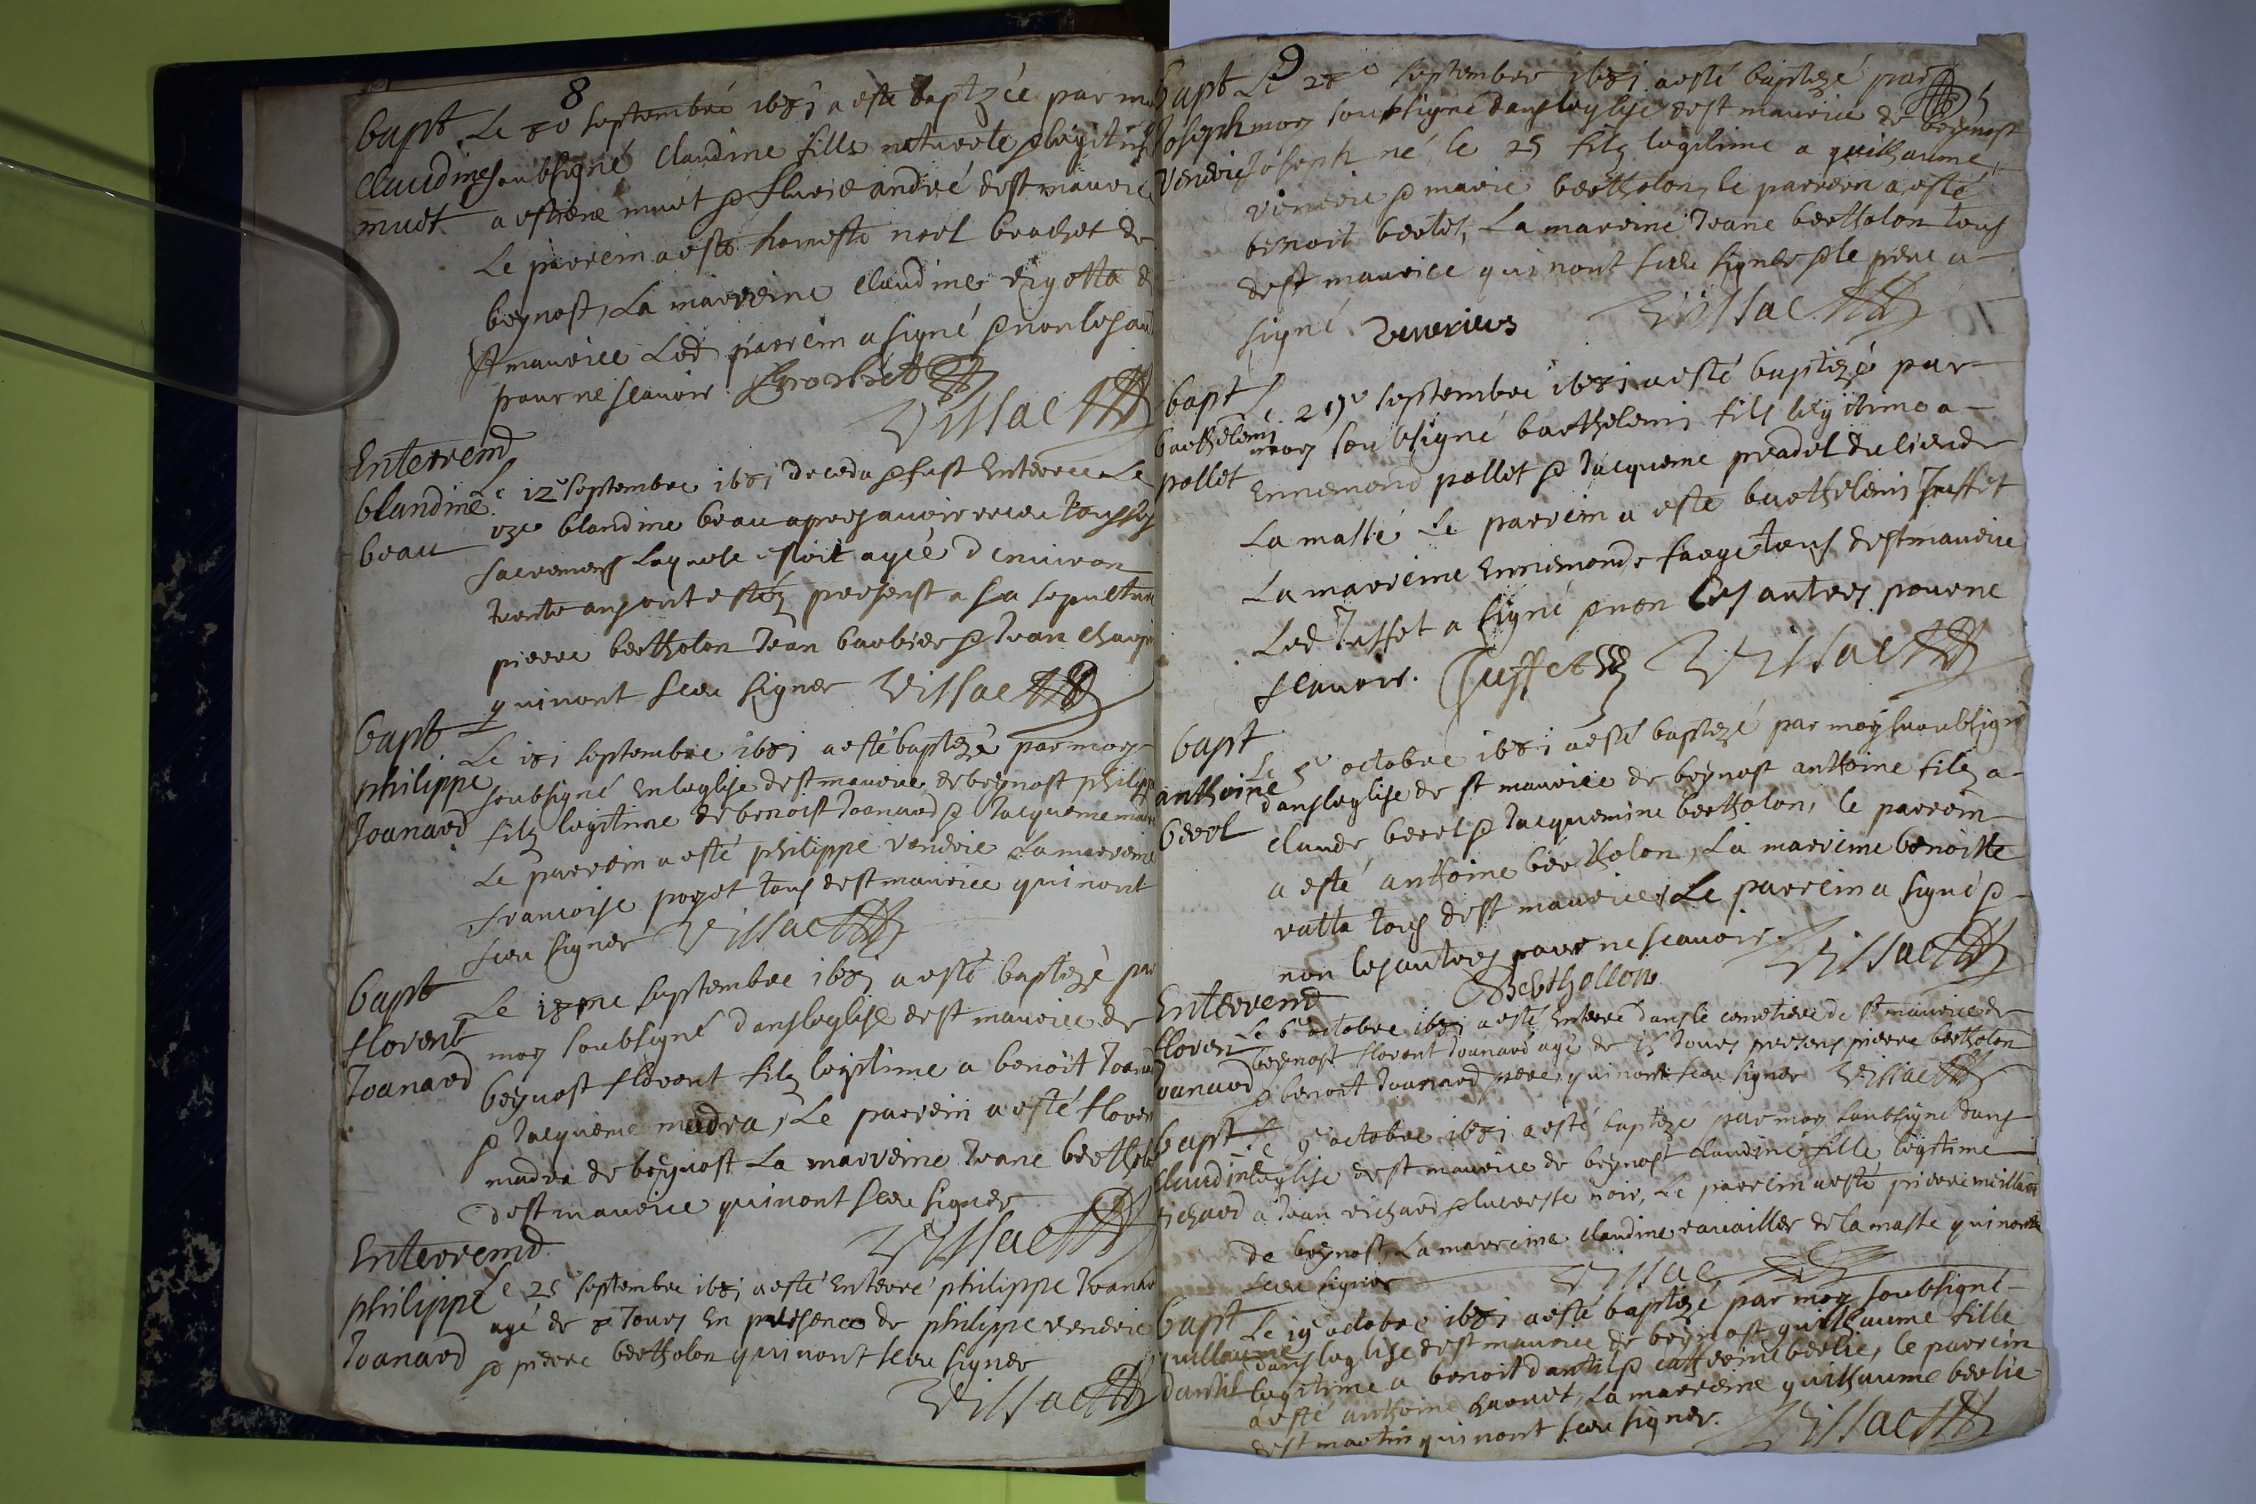 8
bapt
claudine
muet
Le 80 septembre 1681 a esté baptzée par m
soubsigné claudine fille naturele & legiti
a estiene muet & flurie andré de st mauri
Le parrein a esté honneste noel brochet de
beynost, La marreine claudine rigotta d
st maurice Led parrein a signé & non les au
pour ne scavoir. Brochet
Vissac
Enterremt
blandine
beau
Le 12e septembre 1681 deceda & fust Enterree Le
13e blandine beau apres avoir receu tous ses
sacremens laquele estoit agée d'environ
trente ans ont estéz presenst a sa sepulture
pierre bertholon Jean barbier & Jean
qui nont sceu signer Vissac
bapt
philippe
Joanard
Le 181 septembre 1681 a esté baptizé par moy
soubsigné En leglise de st maurice de beynost philipp
filz legitime de benoist Joanard & Jacqueme ma
Le parrein a esté philippe vendrie La marreine
francoise poget tous de st maurice qui nont
sceu signer Vissac
bapt
florent
Joanard
Le 18me septembre 1681 a esté baptizé par
moy soubsigné dans leglise de st maurice de
beynost florent filz legitime a benoit Joana
& Jacqueme madra, Le parrein a esté floren
madra de beynost La marreine Jeane berthol
de st maurice qui nont sceu signer
Vissac
Enterremt
philippe
Joanard
Le 25e septembre 1681 a esté Enterré philippe Joanar
agé de 8 Jours En presence de philippe vendrie
& pierre bertholon qui nont sceu signer
Vissac
9
bapt
Joseph
Vendrie
Le 28e septembre 1681 a esté baptizé par
moy soubsigné dans leglise de st maurice de beynost
Joseph né le 25 filz legitime a guilhaume
vendrie & marie bertholon, le parrein a esté
benoit bertet, La marreine Jeane bertholon tous
de st maurice qui nont sceu signer & le pere a
signé. Venerieus Vissac
bapt
barthelemi
pollet
Le 29e septembre 1681 a esté baptizé par
moy soubsigné barthelemi fils legitime a
Ennemond pollet & Jacqueme pradel du lieu de
La masse Le parrein a esté barthelemi Juffet
La marreine Ennemonde farge tous de st maurice
Led Juffet a signé & non Les autres pour ne
scavoir. Juffet Vissac
bapt
anthoine
berol
Le 5e octobre 1681 a esté baptizé par moy soubsigné
dans leglise de st maurice de beynost anthoine filz a
claude berol & Jacquemine bertholon, le parrein
a esté anthoine bertholon, La marreine benoitte
ratta tous de st maurice, Le parrein a signé &
non les autres pour ne scavoir. Vissac
Berthollon
Enterremt
floren
Joanard
Le 6e octobre 1681 a esté Enterré dans le cemetiere de st maurice de
beynost florent Joanard agé de 15 Jours presens pierre bertholon
& benoit Joannard pere qui nont sceu signer Vissac
bapt
claudine
richard
Le 9e octobre 1681 a esté baptize par moy soubsigné dans
leglise de st maurice de beynost claudine fille legitime
a Jean richard & lucresse noir, Le parrein a esté pierre meillar
de beynost, La marreine claudine ravailler de la masse qui nont
sceu signer Vissac
bapt
guillaume
dantil
Le 19e octobre 1681 a esté baptizé par moy soubsigné
dans leglise de st maurice de beynost guilhaume fille
legitime a benoit dantil & catherine berlie, le parrein
a esté anthoine La marreine guilhaume berlie
de st martin qui nont sceu signer. Vissac